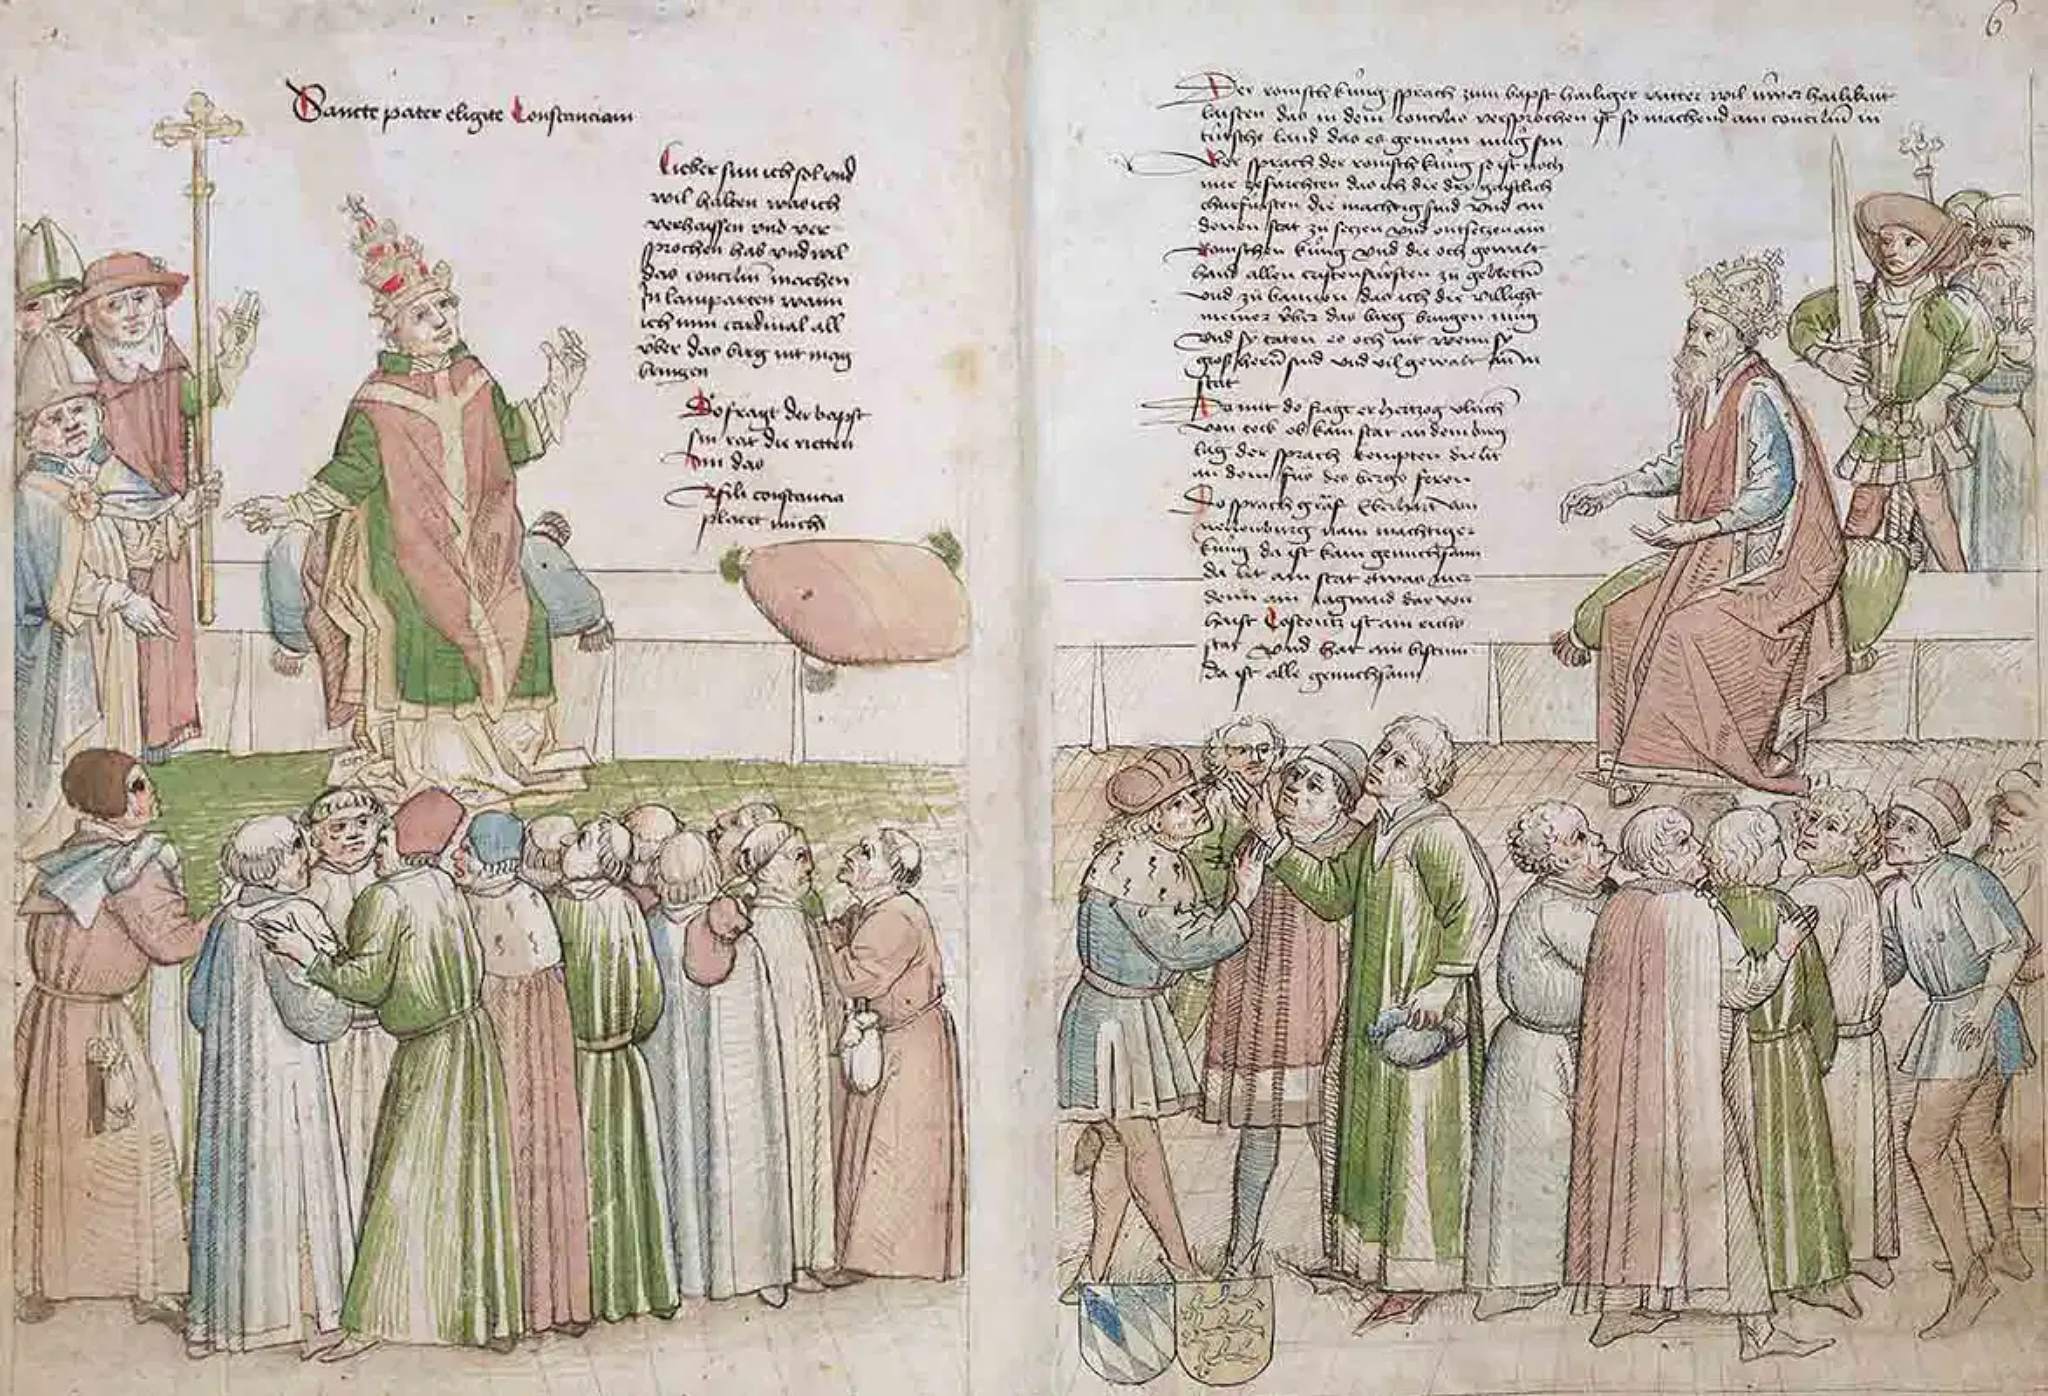 Sancte pater eligite Constanciam
Lieber sun ich sol vnd
wil halten was ich
verhaissen vnd ver
sprochen hab vnd wil
das conciliū machen
in lamparten wann
ich min cardinal all
v̈ber das birg nit mag
bringen
Do fragt der bapst
sin rat die rietten
im das
O fili constancia
placet michi
6
Der romisch kúng sprach zum bapst hailiger vatter wil úwer hailikait
laisten das in dem concilio versprochen ist so machend ain conciliū in
tútsche land das es gemain mug sin
Mer sprach der romisch kúng so ist noch
mer ze fúrchten das ich die dry gaistlich
churfúrsten die machtig sind vnd an
denen stat zu seczen vnd entseczen ain
Romschen kúng vnd die och gewalt
hand allen cristenfúrsten zu gebieten
vnd zu bannen das ich die villight
niener v̈ber das birg bringen mug
vnd sy taten es och nit wenn sy
groß herrē sind vnd vil gewalt an in
stat
Da mit do fragt er hertzog vlrich
von teck ob kain stat an dem birg
lag der sprach kempten die lit
an dem fús des bergs feren
Do sprach graf Eberhart von
nellenburg nain machtiger
kúng da ist kain genuchsam
da lit ain stat etwas mer
denn ain tagwaid dar von
haist Costentz ist ain richs
stat vnd hat ain bistum
da ist alle genuchsam